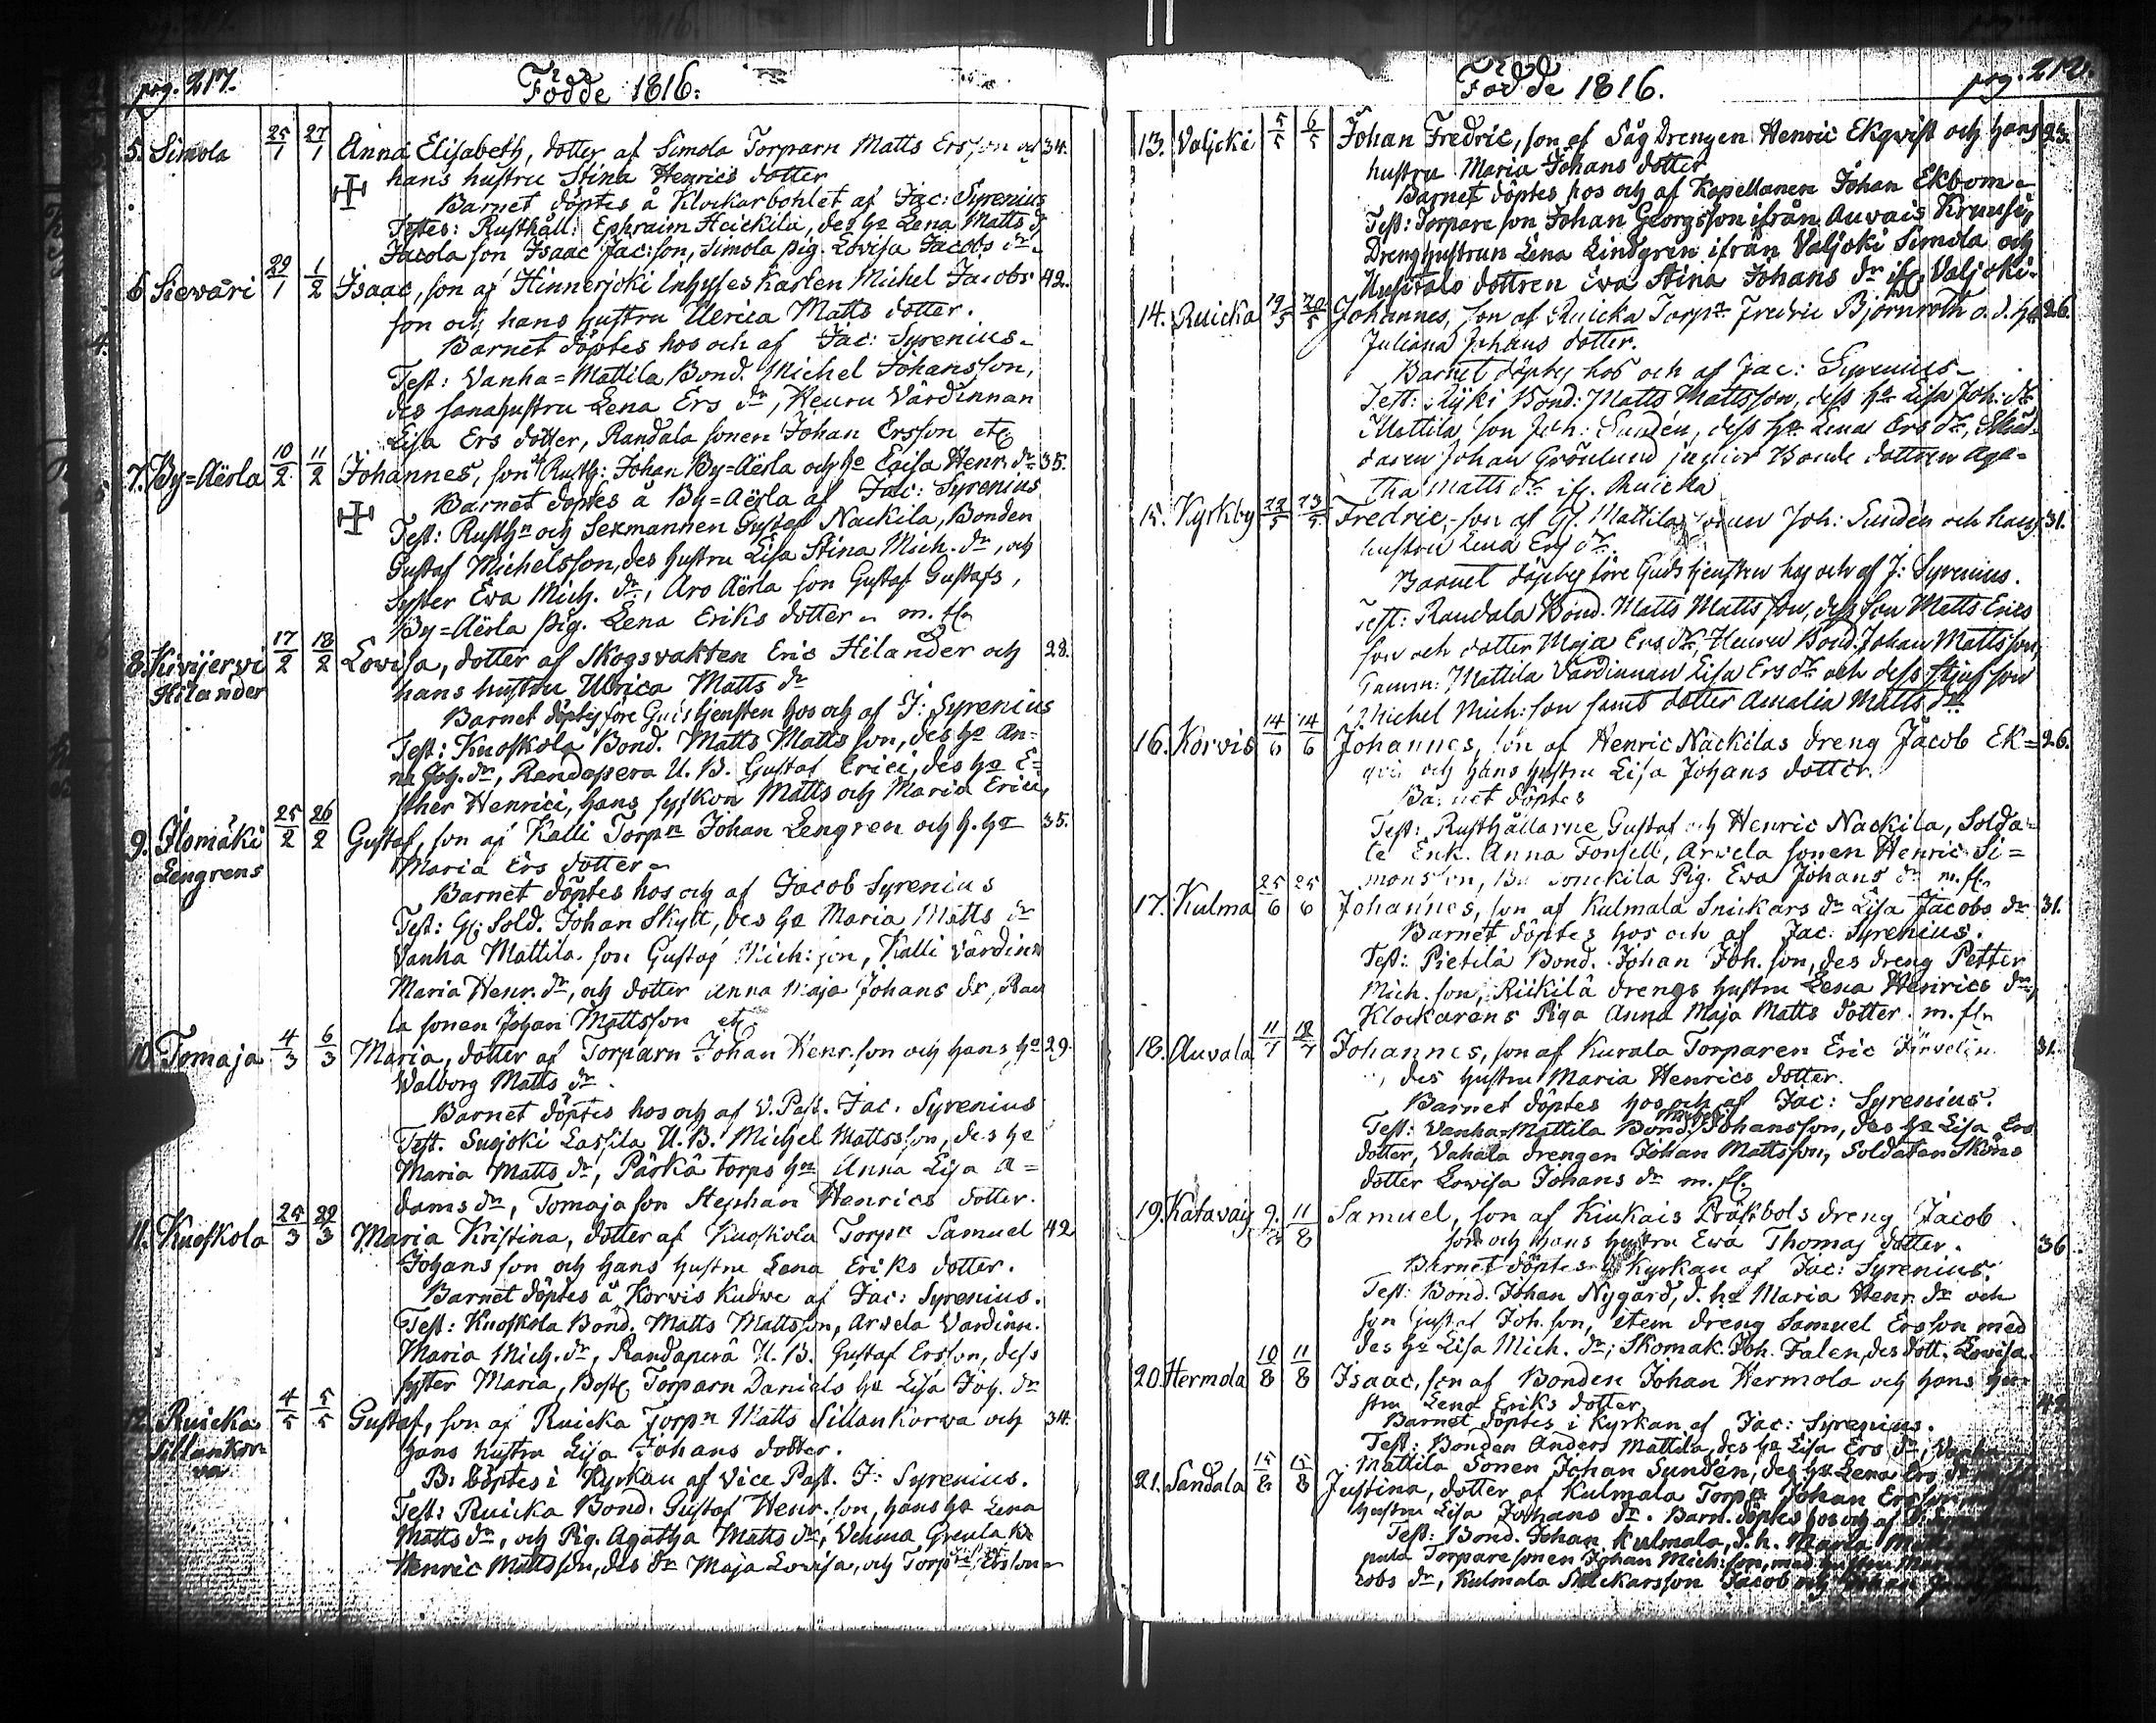 pag. 217.
Födde 1816:
5. Simola 25/1 27/1 Anna Elisabeth, dotter af Simola Torparn Matts Ersson och 34.
hans hustru Stina Henrics dotter
Barnet döptes å Klockarbohlet af Jac: Syrenius
Testes: Rusthåll. Ephraim Heickilä, des ha Lena Matts d
Jacola son Isaac Jac:son, Simola pig. Lovisa Jacobs dr
6. Sieväri 29/1 1/2 Isaac, son af Hinnerjoki Inhyses Karlen Michel Jacobs 42.
son och hans hustru Ulrica Matts dotter.
Barnet döptes hos och af Jac: Syrenius.
Test: Vanha=Mattila Bond. Michel Johansson,
des sonahustru Lena Ers dr, Heuru Värdinnan
Lisa Ers dotter, Randala sonen Johan Ersson etc
7. By=Aërla 10/2 11/2 Johannes, son Rusth: Johan By=Aërla och ha Lisa Henr. dr 35.
Barnet döptes å By=Aërla af Jac: Syrenius
Test: Rusthn och Sexmannen Gustaf Nackila, Bonden
Gustaf Michelsson, des hustru Lisa Stina Mich. dr, och
syster Eva Mich. dr; Aro Aërla son Gustaf Gustafs,
By=Aërla pig. Lena Eriks dotter m. fl.
8. Kivijerwi 17/2 18/2 Lovisa, dotter af Skogsvakten Eric Hilander och 28.
Hilander hans hustru Ulrica Matts dr
Barnet döptes före Gudstjensten hos och af J: Syrenius
Test: Kuoskola Bond. Matts Mattsson, des ha An-
na Joh. dr, Randapera U. B. Gustaf Erici, des ha E=
sther Henrici, hans syskon Matts och Maria Erici,
9. Ilomäki 25/2 26/2 Gustaf, son af Kalli Torpn Johan Lengren och h. ha 35.
Lengrens Maria Ers dotter
Barnet döptes hos och af Jacob Syrenius
Test: Gl. Sold. Johan Skytt, des ha Maria Matts dr
Vanha Mattila son Gustaf Mich: son, Kalli Värdinn
Maria Henr. dr, och dotter Anna Maja Johans dr, Ran
la sonen Johan Mattsson etc
10. Tomaja 4/3 6/3 Maria, dotter af Torparn Johan Henr. son och hans ha 29.
Walborg Matts dr.
Barnet döptes hos och af V. Past. Jac. Syrenius
Test. Sugjoki Lassila U. B. Michel Mattsson, des ha
Maria Matts dr, Pärkä torps hn Anna Lisa A=
dams dr, Tomaja son Stephan Henrics dotter.
11. Kuoskola 25/3 29/3 Maria Kristina, dotter af Kuoskola Torpn Samuel 42
Johansson och hans hustru Lena Eriks dotter.
Barnet döptes å Korvis Kudwe af Jac: Syrenius.
Test: Kuoskola Bond. Matts Mattsson, Arvela Vardinn.
Maria Mich. dr, Randaperä U. B. Gustaf Ersson, dess
syster Maria, Bost. Torparn Daniels ha Lisa Joh. dr
12. Ruicka 4/5 5/5 Gustaf, son af Ruicka Torpn Matts Sillankorwa och 34.
Sillankor- hans hustru Lisa Johans dotter.
wa B. döptes i Kyrkan af vice Past. J: Syrenius.
Test: Ruicka Bond. Gustaf Henr. son, hans ha Lena
Matts dr, och Pig. Agatha Matts dr, Vehma Greula
Henric Mattsson, des dr Maja Lovisa, och Torpare Ersson
pag. 218.
Födde 1816.
13. Valjoki 5/5 6/5 Johan Fredric, son af Såg Drengen Henric Ekqvist och hans 23.
hustru Maria Johans dotter
Barnet döptes hos och af Kapellanen Johan Ekbom
Test: Torpare son Johan Georgsson ifrån Auvais Krausi,
Dreng hustrun Lena Lindgren ifrån Valjoki Simola och
Uusitalo dottren Eva Stina Johans dr if. Valjoki.
14. Ruicka 19/5 20/5 Johannes, son af Ruicka Torpn Fredric Björnroth o. d. ha 26.
Juliana Johans dotter.
Barnet döptes hos och af Jac: Syrenius
Test: Äyki Bond: Matts Mattsson, dess ha Lisa Joh: dr
Mattila son Joh: Sundén, dess ha Lena Ers dr,
daren Johan Grönlund junior Bonde dottren Aga-
tha Matts dr if. Ruicka
15. Kyrkby 22/5 23/5 Fredric, son af Gl. Mattila Joh: Sundén och hans 31.
hustru Lena Ers dr.
Barnet döptes före Gudstjensten hos och af J: Syrenius.
Test: Randala Bond. Matts Mattsson, dess son Matts Erics
son och dotter Maja Ers dr, Heuru Bond. Johan Mattsson,
Gamm: Mattila Värdinnan Lisa Ers dr och dess Stjufson
Michel Mich: son samt dotter Amalia Matts dr
16. Korvis 14/6 14/6 Johannes, son af Henric Nackilas dreng Jacob Ek= 26.
qvis och hans hustru Lisa Johans dotter.
Barnet döptes
Test: Rusthållarne Gustaf och Henric Nackila, Solda-
te Enk. Anna Fonsell, Arvela sonen Henric Si=
monsson, Pig. Ewa Johans dr m. fl.
17. Kulma 25/6 25/6 Johannes, son af Kulmala Snickars dr Lisa Jacobs dr 31.
Barnet döptes hos och af Jac: Syrenius.
Test: Pietilä Bond. Johan Joh. son, des dreng Petter
Mich. son, Riikilä drengs hustru Lena Henrics dr,
Klockarens Piga Anna Maja Matts dotter. m. fl.
18. Auvala 11/7 12/7 Johannes, son af Kurala Torparen Eric Järvelin 31.
des hustru Maria Henrics dotter.
Barnet döptes hos och af Jac: Syrenius.
Test: Vanha=Mattila Bond. Michel Johansson, des ha Lisa Ers
dotter, Vahala drengen Johan Mattsson, Soldaten Sköns
dotter Lovisa Johans dr m. fl.
19. Katavais 9/8 11/8 Samuel, son af Kiukais Präſtbols dreng Jacob
son och hans hustru Ewa Thomas dotter. 36
Barnet döptes Kyrkan af Jac: Syrenius.
Test: Bond. Johan Nygård, d. ha Maria Henr. dr och
son Gustaf Joh. son, item dreng Samuel Ersson med
des ha Lisa Mich. dr; Skomak. Joh. Falen, des dott. Lowisa
20. Hermola 10/8 11/8 Isaac, son af Bonden Johan Hermola och hans hu-
stru Lena Eriks dotter 42
Barnet döptes i Kyrkan af Jac: Syrenius.
Test: Bonden Anders Mattila, des ha Lisa Ers dr, Vanha
Mattila Sonen Johan Sundén, des ha Lena Ers dr
21. Sandala 15/8 15/8 Justina, dotter af Kulmala Torpn Johan Ersson
hustru Lisa Johans dr. Barn. döptes hos och af J:
Test: Bond. Johan Kulmala, d. h. Maria
Torpare sonen Johan Mich:son, med
cobs dr, Kulmala Snickarsson Jacob och